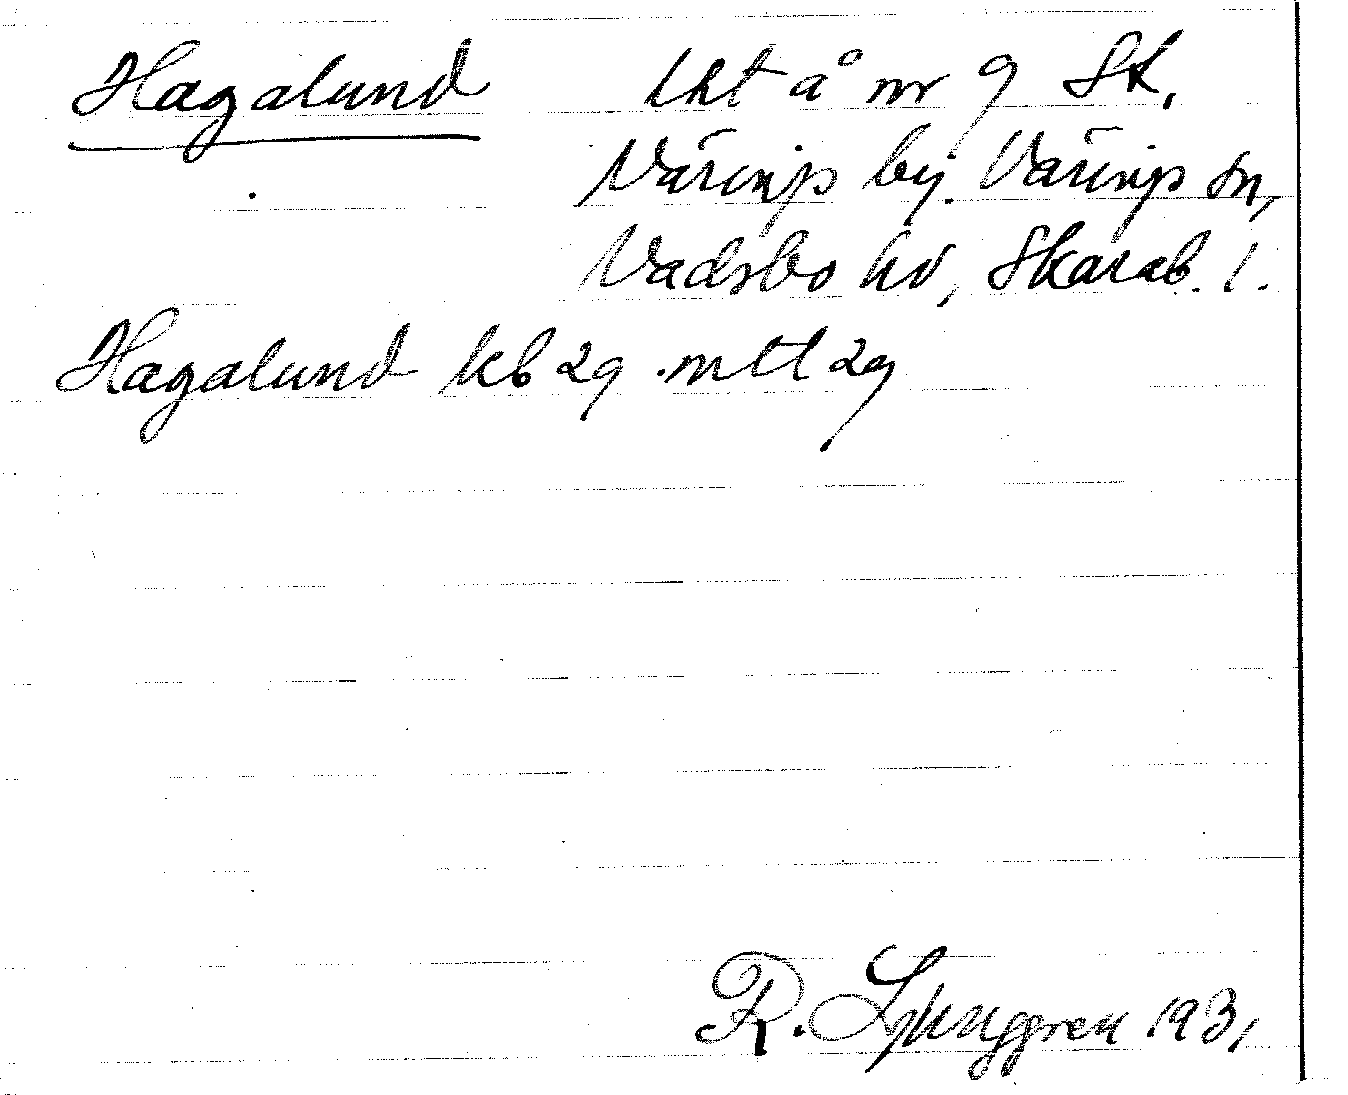 Hagalund lht å nr 9 Sk.
Värings by. Värings sn,
Vadsbo hd, Skarab. l.
Hagalund kb 29 mtl 29
R. Ljunggren 1931